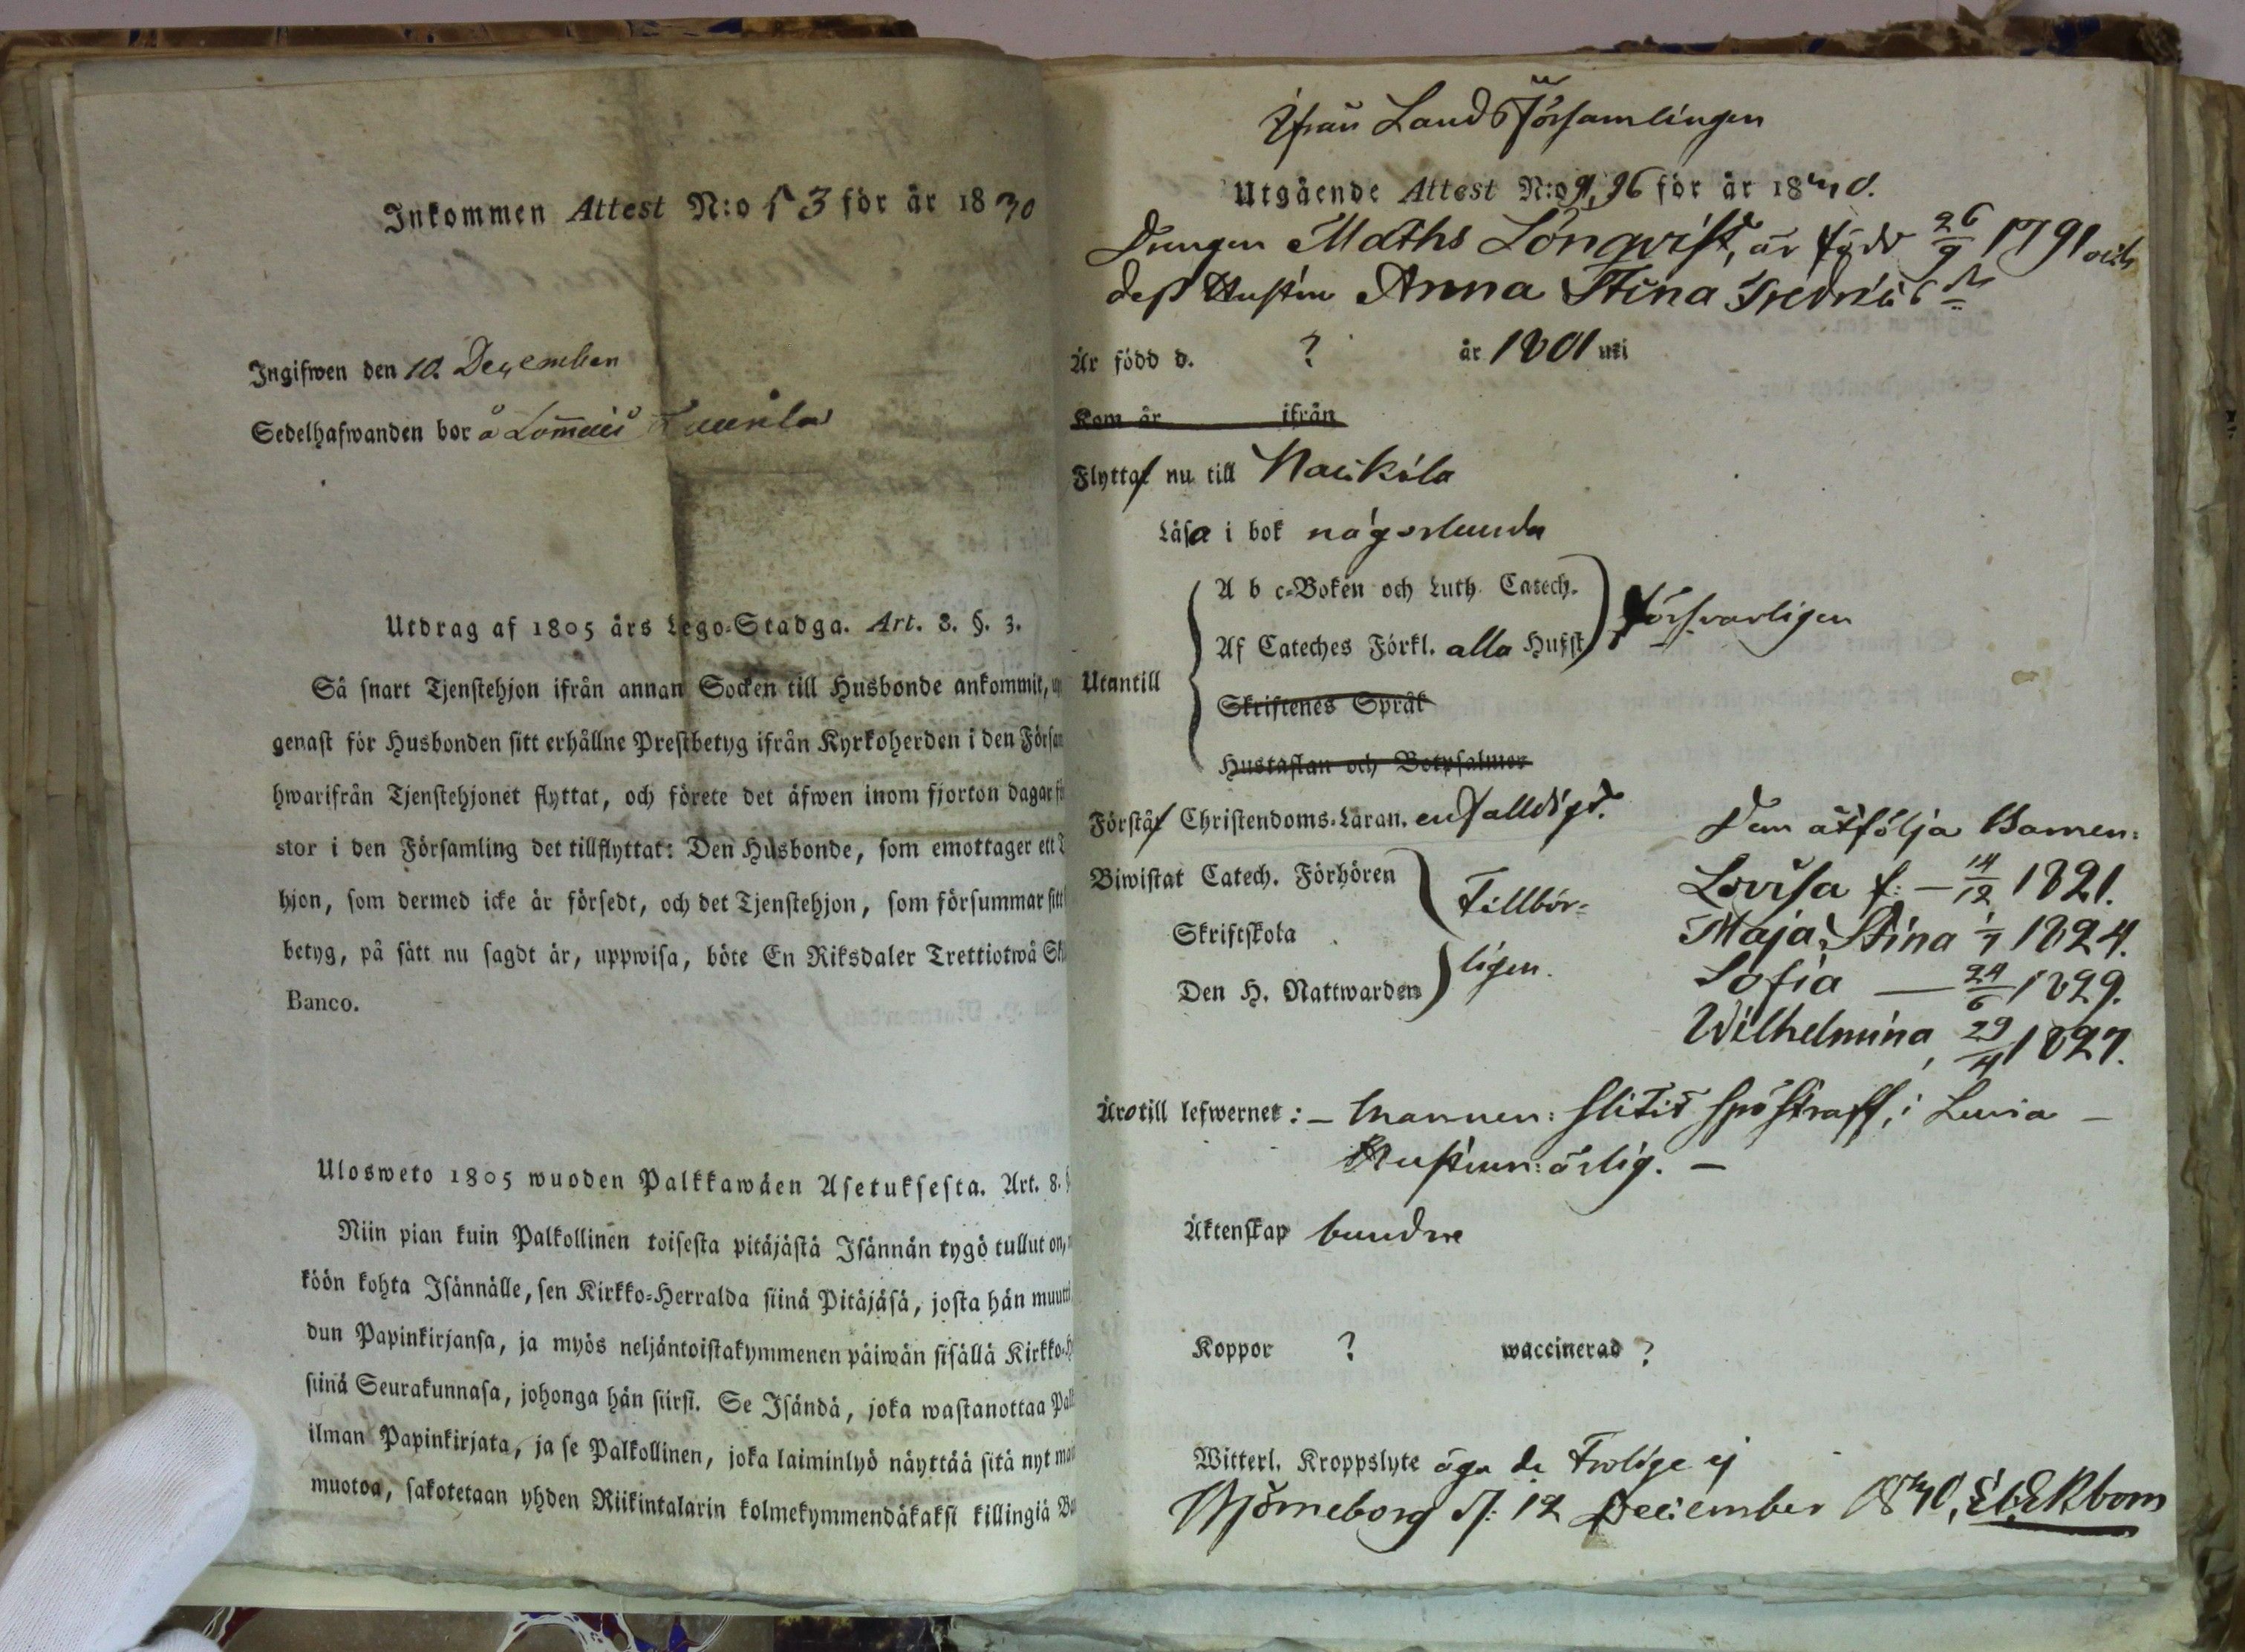 Inkommen Attest N:o 53 för år 1830
Ingifwen den 10. December
Sedelhafwanden bor å
Utdrag af 1805 års Lego-Stadga. Art. 8. §. 3.
Så snart Tjenstehjon ifrån annan Socken till Husbonde ankommit,
genast för Husbonden sitt erhållne Prestbetyg ifrån Kyrkoherden i den Försam
hwarifrån Tjenstehjonet flyttat, och förete det äfwen inom fjorton dagar
stor i den Församling det tillflyttat: Den Husbonde, som emottager ett
hjon, som dermed icke är försedt, och det Tjenstehjon, som försummar sitt
betyg, på sätt nu sagdt är, uppwisa, böte En Riksdaler Trettiotwå Sk
Banco.
Ulosweto 1805 wuoden Palkkawäen Asetuksesta. Art. 8.
Niin pian kuin Palkollinen toisesta pitäjästä Isännän tygö tullut on,
köön kohta Isännälle, sen Kirkko-Herralda siinä Pitäjäsä, josta hän muutt
dun Papinkirjansa, ja myös neljäntoistakymmenen päiwän sisällä Kirkko-H
siinä Seurakunnasa, johonga hän siirsi. Se Isändä, joka wastanottaa Pal
ilman Papinkirjata, ja se Palkollinen, joka laiminlyö näyttää sitä nyt
muotoa, sakotetaan yhden Riikintalarin kolmekymmendäkaksi killingiä
Ifrån Lands Församlingen
Utgående Attest N:o för år 18
Drängen Maths Lönqvist, är född 26/9 1791 och
dess Hustru Anna Stina Fredric
Är född d. ? år 1801 uti
Kom år ifrån
Flytta nu till Naukila
Läsa i bok någorlunda
Utantill
A b c-Boken och Luth. Catech.
Af Cateches Förkl. alla Hufst
försvarligen
Skriftenes Språk
Hustaflan och Botpsalmer
Förstå Christendoms-Läran. enfalldigt.
Biwistat Catech. Förhören
Skriftskola
Den H. Nattwarden
Tillbör-
ligen.
Dem åtfölja Barnen:
Lovisa f: — 14/12 1821.
Maja Stina 1/7 1824.
Sofia — 24/6 1829.
Wilhelmina, 29/4 1827.
Äro till lefwernet: — Mannen: slitit spöstraff, i Luvia —
Hustrun: ärlig. —
Äktenskap bundne
Koppor ? waccinerad ?
Witterl. Kroppslyte äga de Trolige ej
Björneborg d: 12 December Ekbom